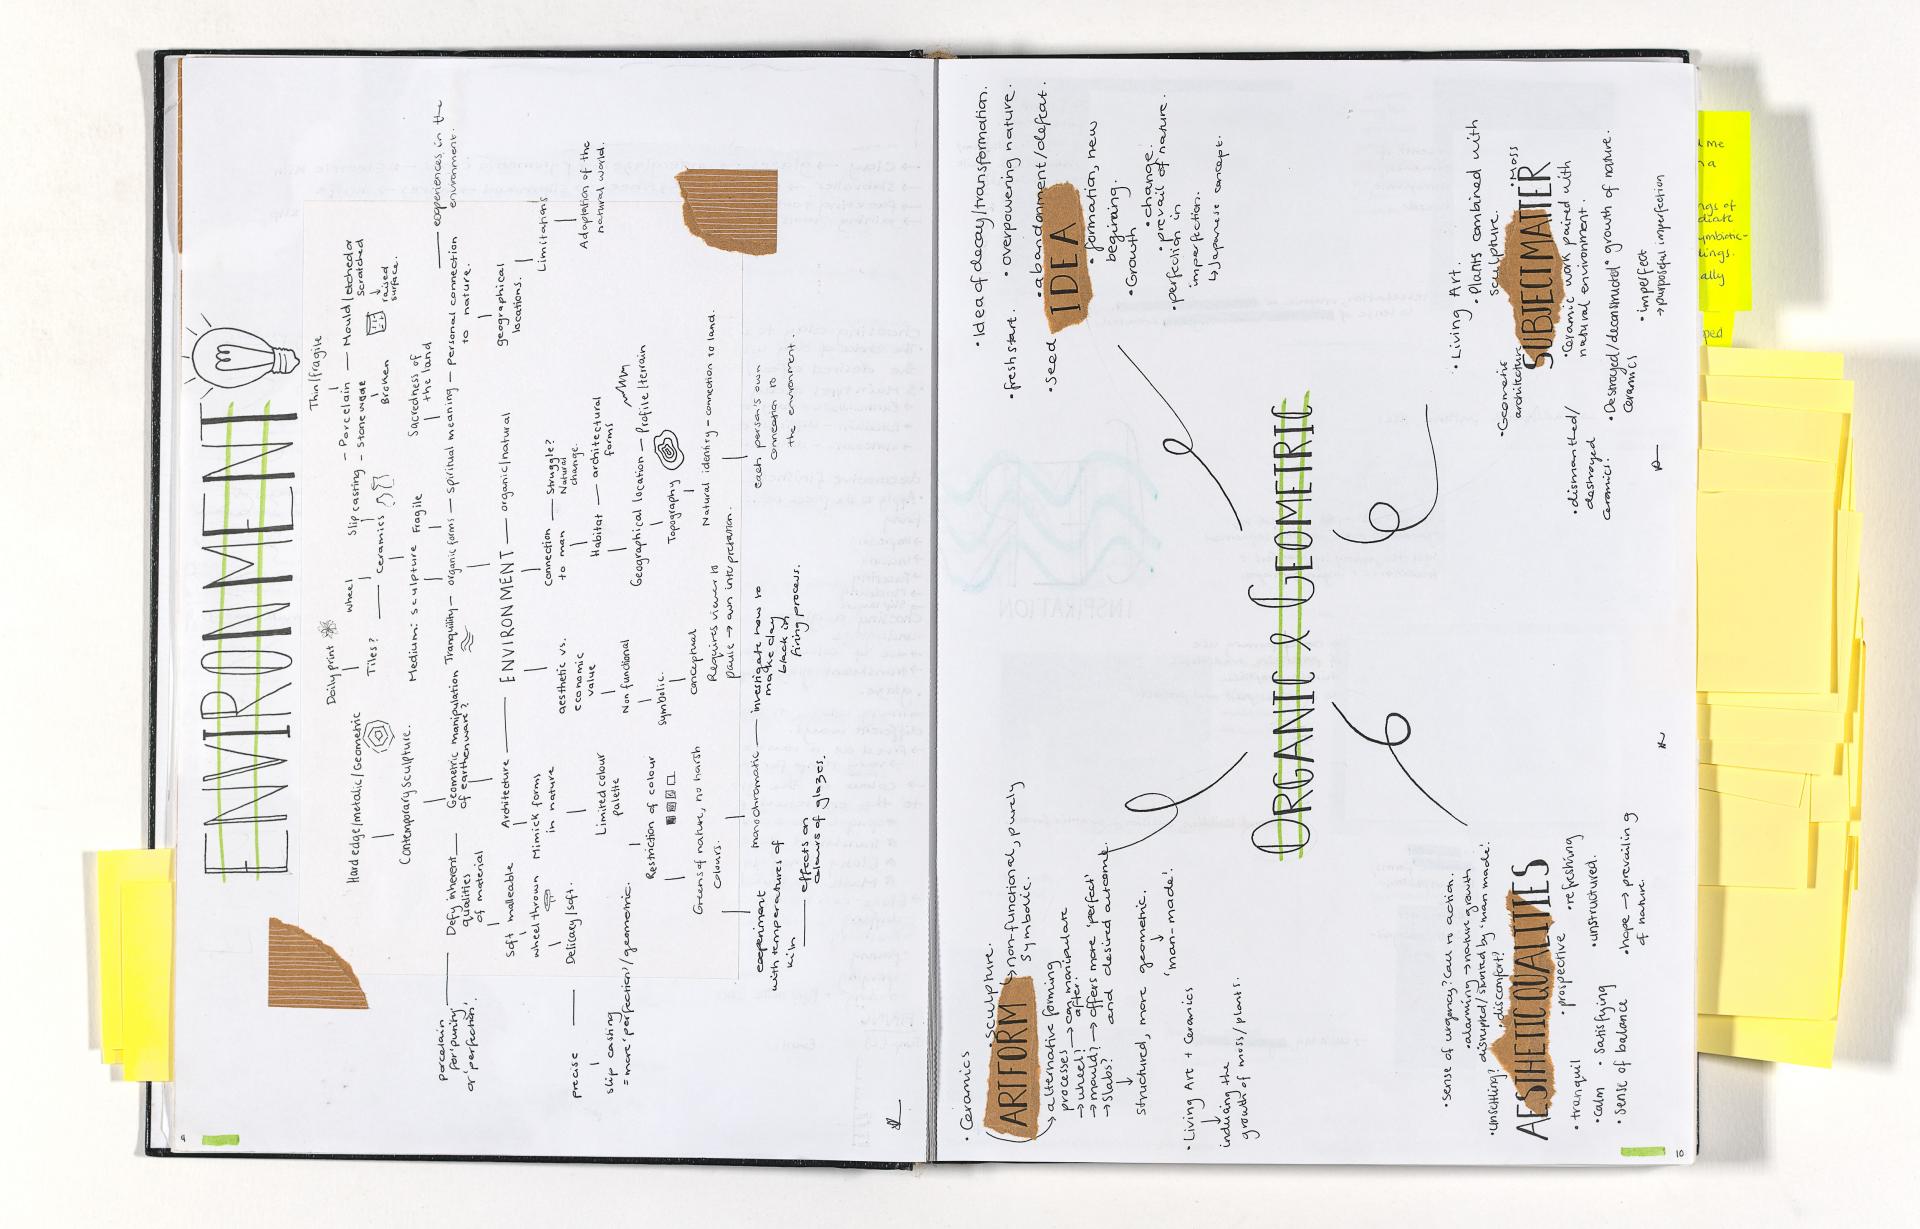 ENVIRONMENT
Thin/fragile
Porcelain
Mould/etched or
scratched
raised
surface.
Slip casting
Stoneware
Broken
Doily print
wheel
Tiles?
Ceramics
Hard edge/metalic/Geometric
Contemporary sculpture.
Medium: sculpture
Fragile
Sacredness of
the land
experiences in the
environment.
Personal connection
to nature.
Spiritual meaning
organic forms
Tranquility
Geometric manipulation
of earthenware?
Defy inherent
qualities
of material
porcelain
for 'purity'
or 'perfection'.
geographical
locations.
Limitations
Adaptation of the
natural world.
ENVIRONMENT
organic/natural
Architecture
Soft malleable
wheel thrown
Delicacy/soft.
precise
slip casting
= more 'perfection'/geometric.
Mimick forms
in nature
Limited colour
palette
Restriction of colour
Greens of nature, no harsh
colours.
aesthetic vs.
economic
value
Non functional
Symbolic.
conceptual
Requires viewer to
pause → own interpretation.
Connection
to man
Struggle?
Natural
change.
Habitat
architectural
forms
Geographical location
Profile/terrain
Topography
Natural identity - connection to land.
each person's own
connection to
the environment.
monochromatic
investigate how to
make clay
black in
firing process.
experiment
with temperatures of
kiln
effects on
colours of glazes.
9
ORGANIC & GEOMETRIC
IDEA
• Idea of decay/transformation.
• fresh start.
• overpowering nature.
• Seed
• abandonment/defeat.
• formation, new
beginning.
• Growth
• change.
• prevail of nature.
• perfection in
imperfection.
↳ Japanese concept.
SUBJECT MATTER
• Living Art.
• Plants combined with
sculpture.
• Moss
• Geometric
architecture
• Ceramic work paired with
natural environment.
• Destroyed/deconstructed
ceramics
• growth of nature.
• dismantled/
destroyed
ceramics.
• imperfect
→ purposeful imperfection
ARTFORM
• Ceramics
• Sculpture.
↳ non-functional, purely
symbolic.
→ alternative forming
processes → can manipulate
after.
→ wheel?
→ mould? → offers more 'perfect'
and desired outcome.
→ slabs?
structured, more geometric.
'man-made'.
• Living Art + Ceramics
including the
growth of moss/plants.
AESTHETIC QUALITIES
• sense of urgency? Call to action.
• alarming → nature growth
disrupted/stunted by 'man made'.
• unsettling?
• discomfort?
• tranquil
• prospective
• refreshing
• calm
• satisfying
• unstructured.
• sense of balance
• hope → prevailing
of nature.
10
INSPIRATION